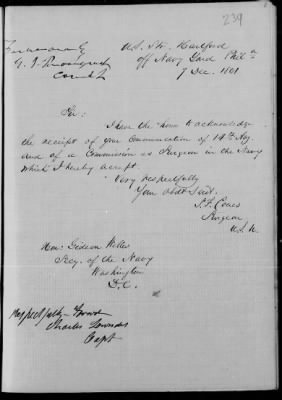 239
U.S. Str. Hartford
off Navy Yard Phila
7 Dec. 1861.
Sir:
I have the honor to acknowledge
the receipt of your Communication of 14th Aug.
and of a Commission as Surgeon in the Navy
which I hereby accept.
Very respectfully
Your Obdt Servt.
S. F. Coues
Surgeon
U.S.N.
Hon: Gideon Welles
Secy. of the Navy
Washington
D.C.
Respectfully
Charles Lowndes
Capt